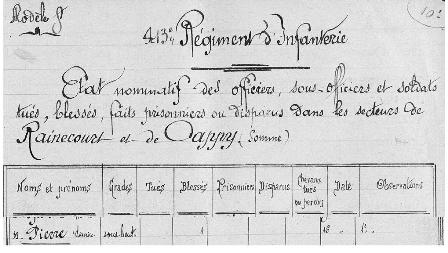 Modèle 8
413e Régiment d'Infanterie
Etat nominatif des officiers, sous-officiers et soldats
tués, blessés, faits prisonniers ou disparus dans les secteurs de
Rainecourt et de Cappy (Somme)
Noms et prénoms Grades Tués Blessés Prisonniers Disparus Chevaux tués ou perdus Date Observations
Pierre sous-lieut. 1